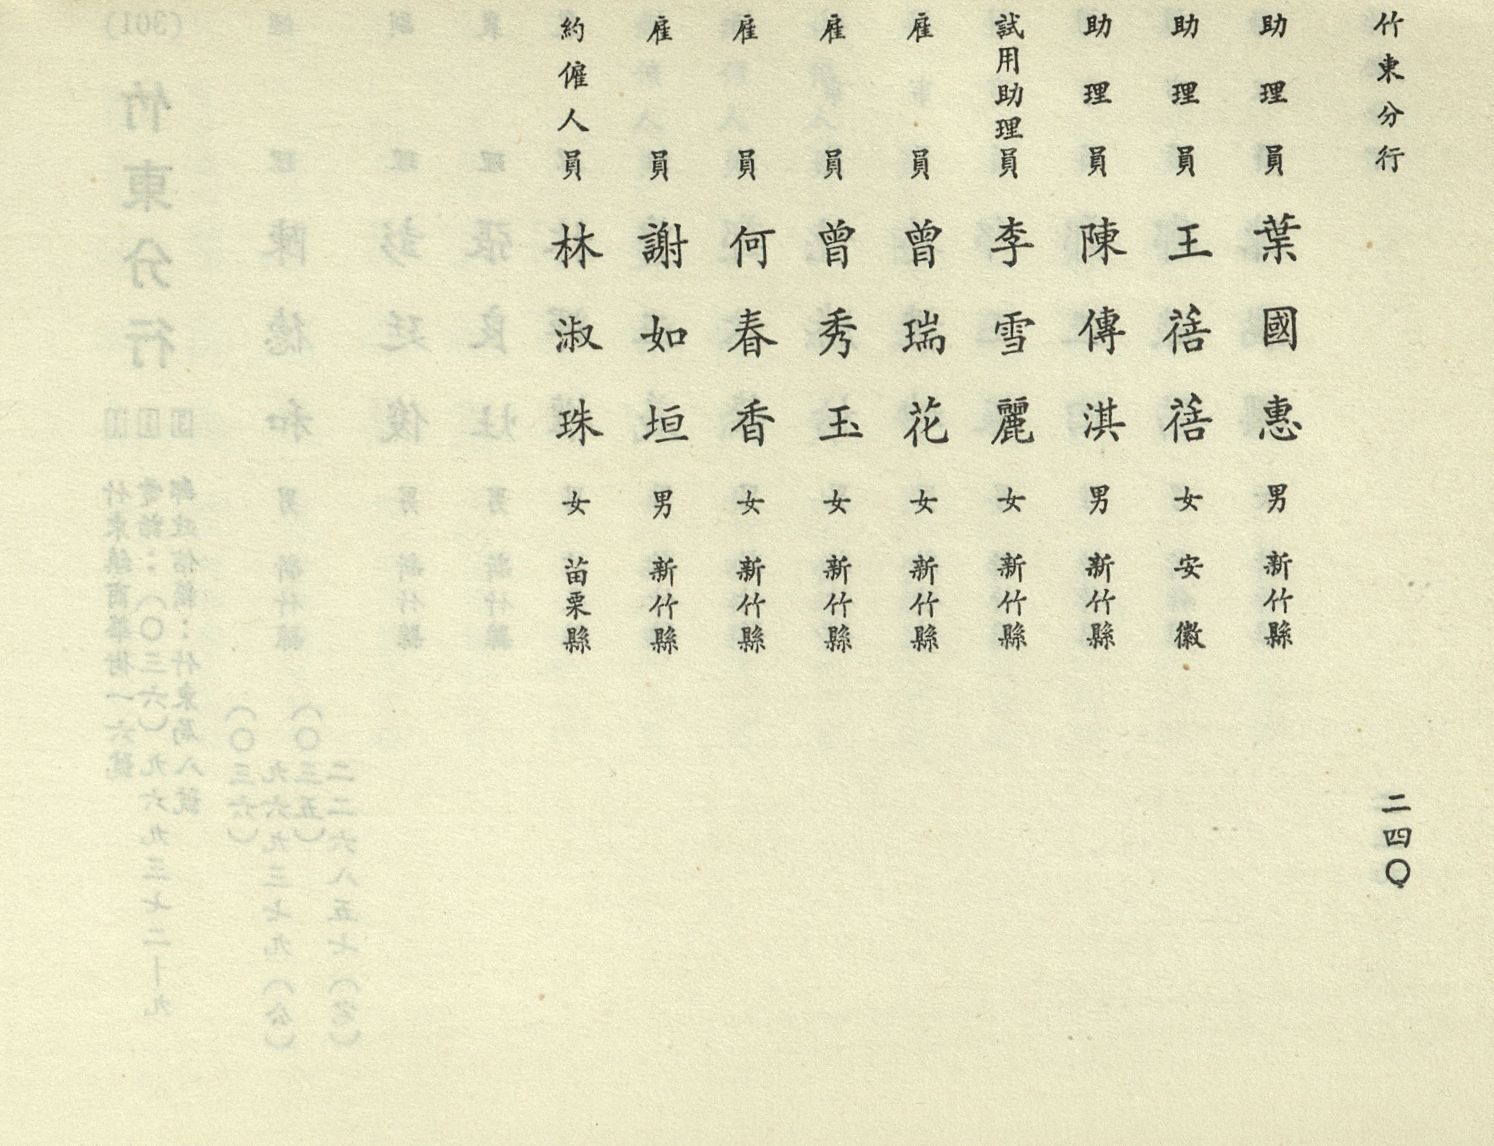 竹東分行
二四〇
助理員 葉國惠 男 新竹縣
助理員 王萻萻 女 安徽
助理員 陳傳淇 男 新竹縣
試用助理員 李雪麗 女 新竹縣
雇員 曾瑞花 女 新竹縣
雇員 曾秀玉 女 新竹縣
雇員 何春香 女 新竹縣
雇員 謝如垣 男 新竹縣
約僱人員 林淑珠 女 苗栗縣